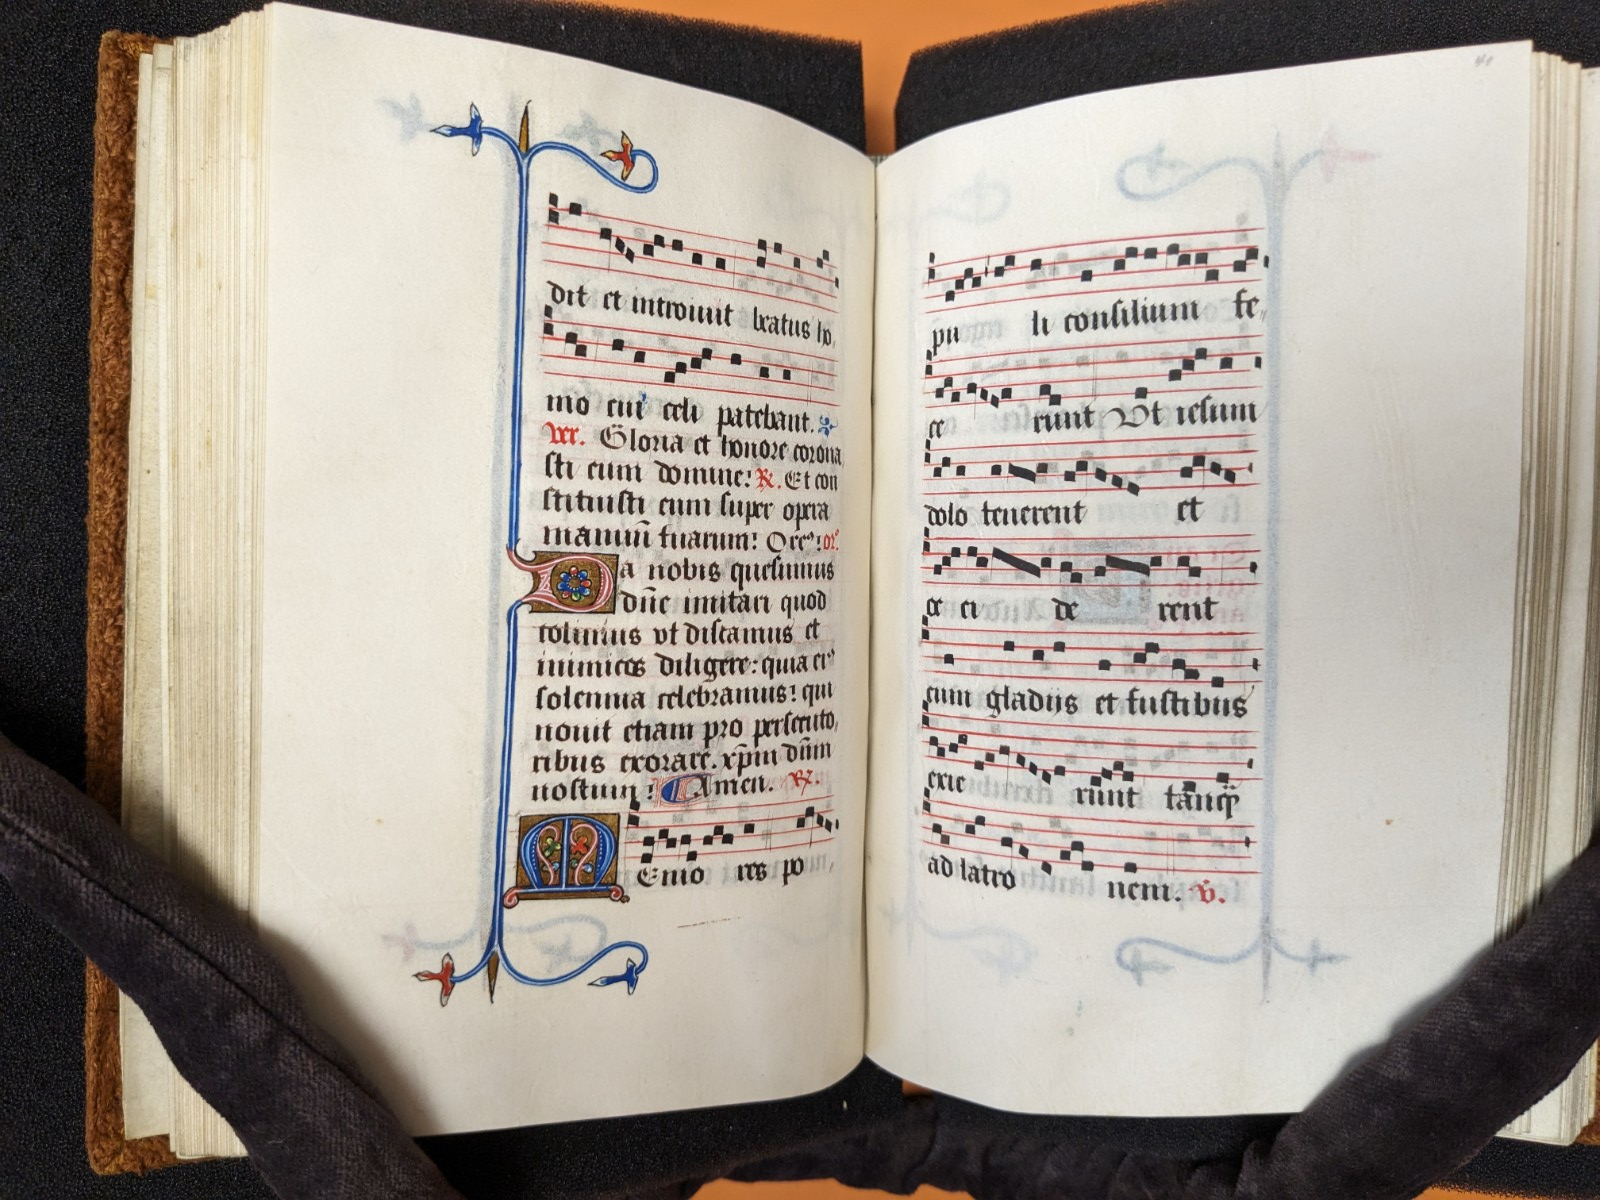 dit et introiuit beatus ho,
mo cui celi patebant.
ver. Gloria et honore corona
sti eum domine: R. Et con
stituisti eum super opera
manuū tuarum: Ore⁹: or̄.
Da nobis quesumus
dn̄e imitari quod
colimus vt discamus et
inimicos diligere: quia ei⁹
solennia celebramus: qui
nouit etiam pro persecuto,
ribus exorare. xp̄m dn̄m
nostrum: Amen. R.
MEnio res po
40
pu li consilium fe,
ce runt Vt iesum
dolo tenerent et
oc ci de rent
cum gladijs et fustibus
exie runt tanq̄
ad latro nem. V.